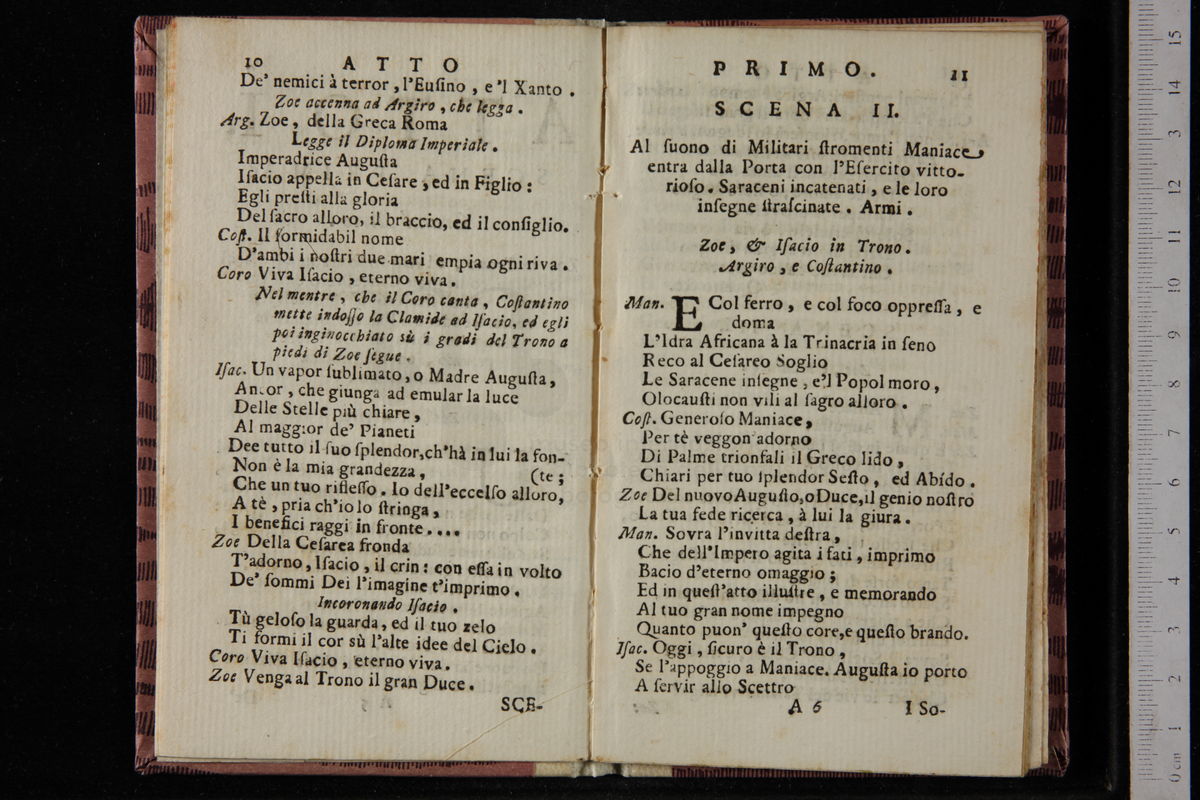 10 ATTO
De' nemici à terror, l'Eusino, e 'l Xanto.
Zoe accenna ad Argiro, che legga.
Arg. Zoe, della Greca Roma
Legge il Diploma Imperiale.
Imperadrice Augusta
Isacio appella in Cesare, ed in Figlio:
Egli presti alla gloria
Del sacro alloro, il braccio, ed il consiglio.
Cost. Il formidabil nome
D'ambi i nostri due mari empia ogni riva.
Coro Viva Isacio, eterno viva.
Nel mentre, che il Coro canta, Costantino
mette indosso la Clamide ad Isacio, ed egli
poi inginocchiato sù i gradi del Trono a
piedi di Zoe segue.
Isac. Un vapor sublimato, o Madre Augusta,
Ancor, che giunga ad emular la luce
Delle Stelle più chiare,
Al maggior de' Pianeti
Dee tutto il suo splendor, ch'hà in lui la fon-
Non è la mia grandezza, (te;
Che un tuo riflesso. Io dell'eccelso alloro,
A tè, pria ch'io lo stringa,
I benefici raggi in fronte....
Zoe Della Cesarea fronda
T'adorno, Isacio, il crin: con essa in volto
De' sommi Dei l'imagine t'imprimo.
Incoronando Isacio.
Tù geloso la guarda, ed il tuo zelo
Ti formi il cor sù l'alte idee del Cielo.
Coro Viva Isacio, eterno viva.
Zoe Venga al Trono il gran Duce.
SCE-
PRIMO. 11
SCENA II.
Al suono di Militari stromenti Maniace
entra dalla Porta con l'Esercito vitto-
rioso. Saraceni incatenati, e le loro
insegne strascinate. Armi.
Zoe, & Isacio in Trono.
Argiro, e Costantino.
Man. E Col ferro, e col foco oppressa, e
doma
L'Idra Africana à la Trinacria in seno
Reco al Cesareo Soglio
Le Saracene insegne, e'l Popol moro,
Olocausti non vili al sagro alloro.
Cost. Generoso Maniace,
Per tè veggon adorno
Di Palme trionfali il Greco lido,
Chiari per tuo splendor Sesto, ed Abído.
Zoe Del nuovo Augusto, o Duce, il genio nostro
La tua fede ricerca, à lui la giura.
Man. Sovra l'invitta destra,
Che dell'Impero agita i fati, imprimo
Bacio d'eterno omaggio;
Ed in quest'atto illustre, e memorando
Al tuo gran nome impegno
Quanto puon' questo core, e questo brando.
Isac. Oggi, sicuro è il Trono,
Se l'appoggio a Maniace. Augusta io porto
A servir allo Scettro
A 6 I So-